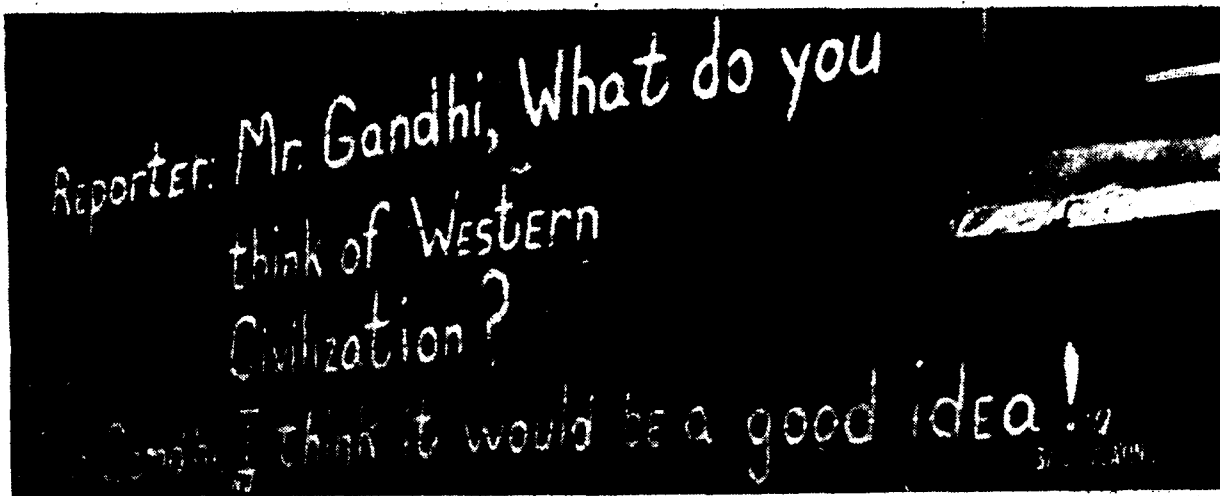 Reporter: Mr. Gandhi, What do you
think of Western
Civilization?
Gandhi: I think it would be a good idea!